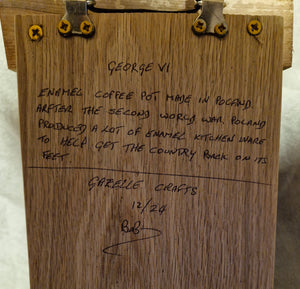 GEORGE VI
ENAMEL COFFEE POT MADE IN POLAND.
ARFTER THE SECOND WORLD WAR POLAND
PRODUCED A LOT OF ENAMEL KITCHEN WARE
TO HELP GET THE COUNTRY BACK ON ITS
FEET
GARELLE CRAFTS
12/24
Bob